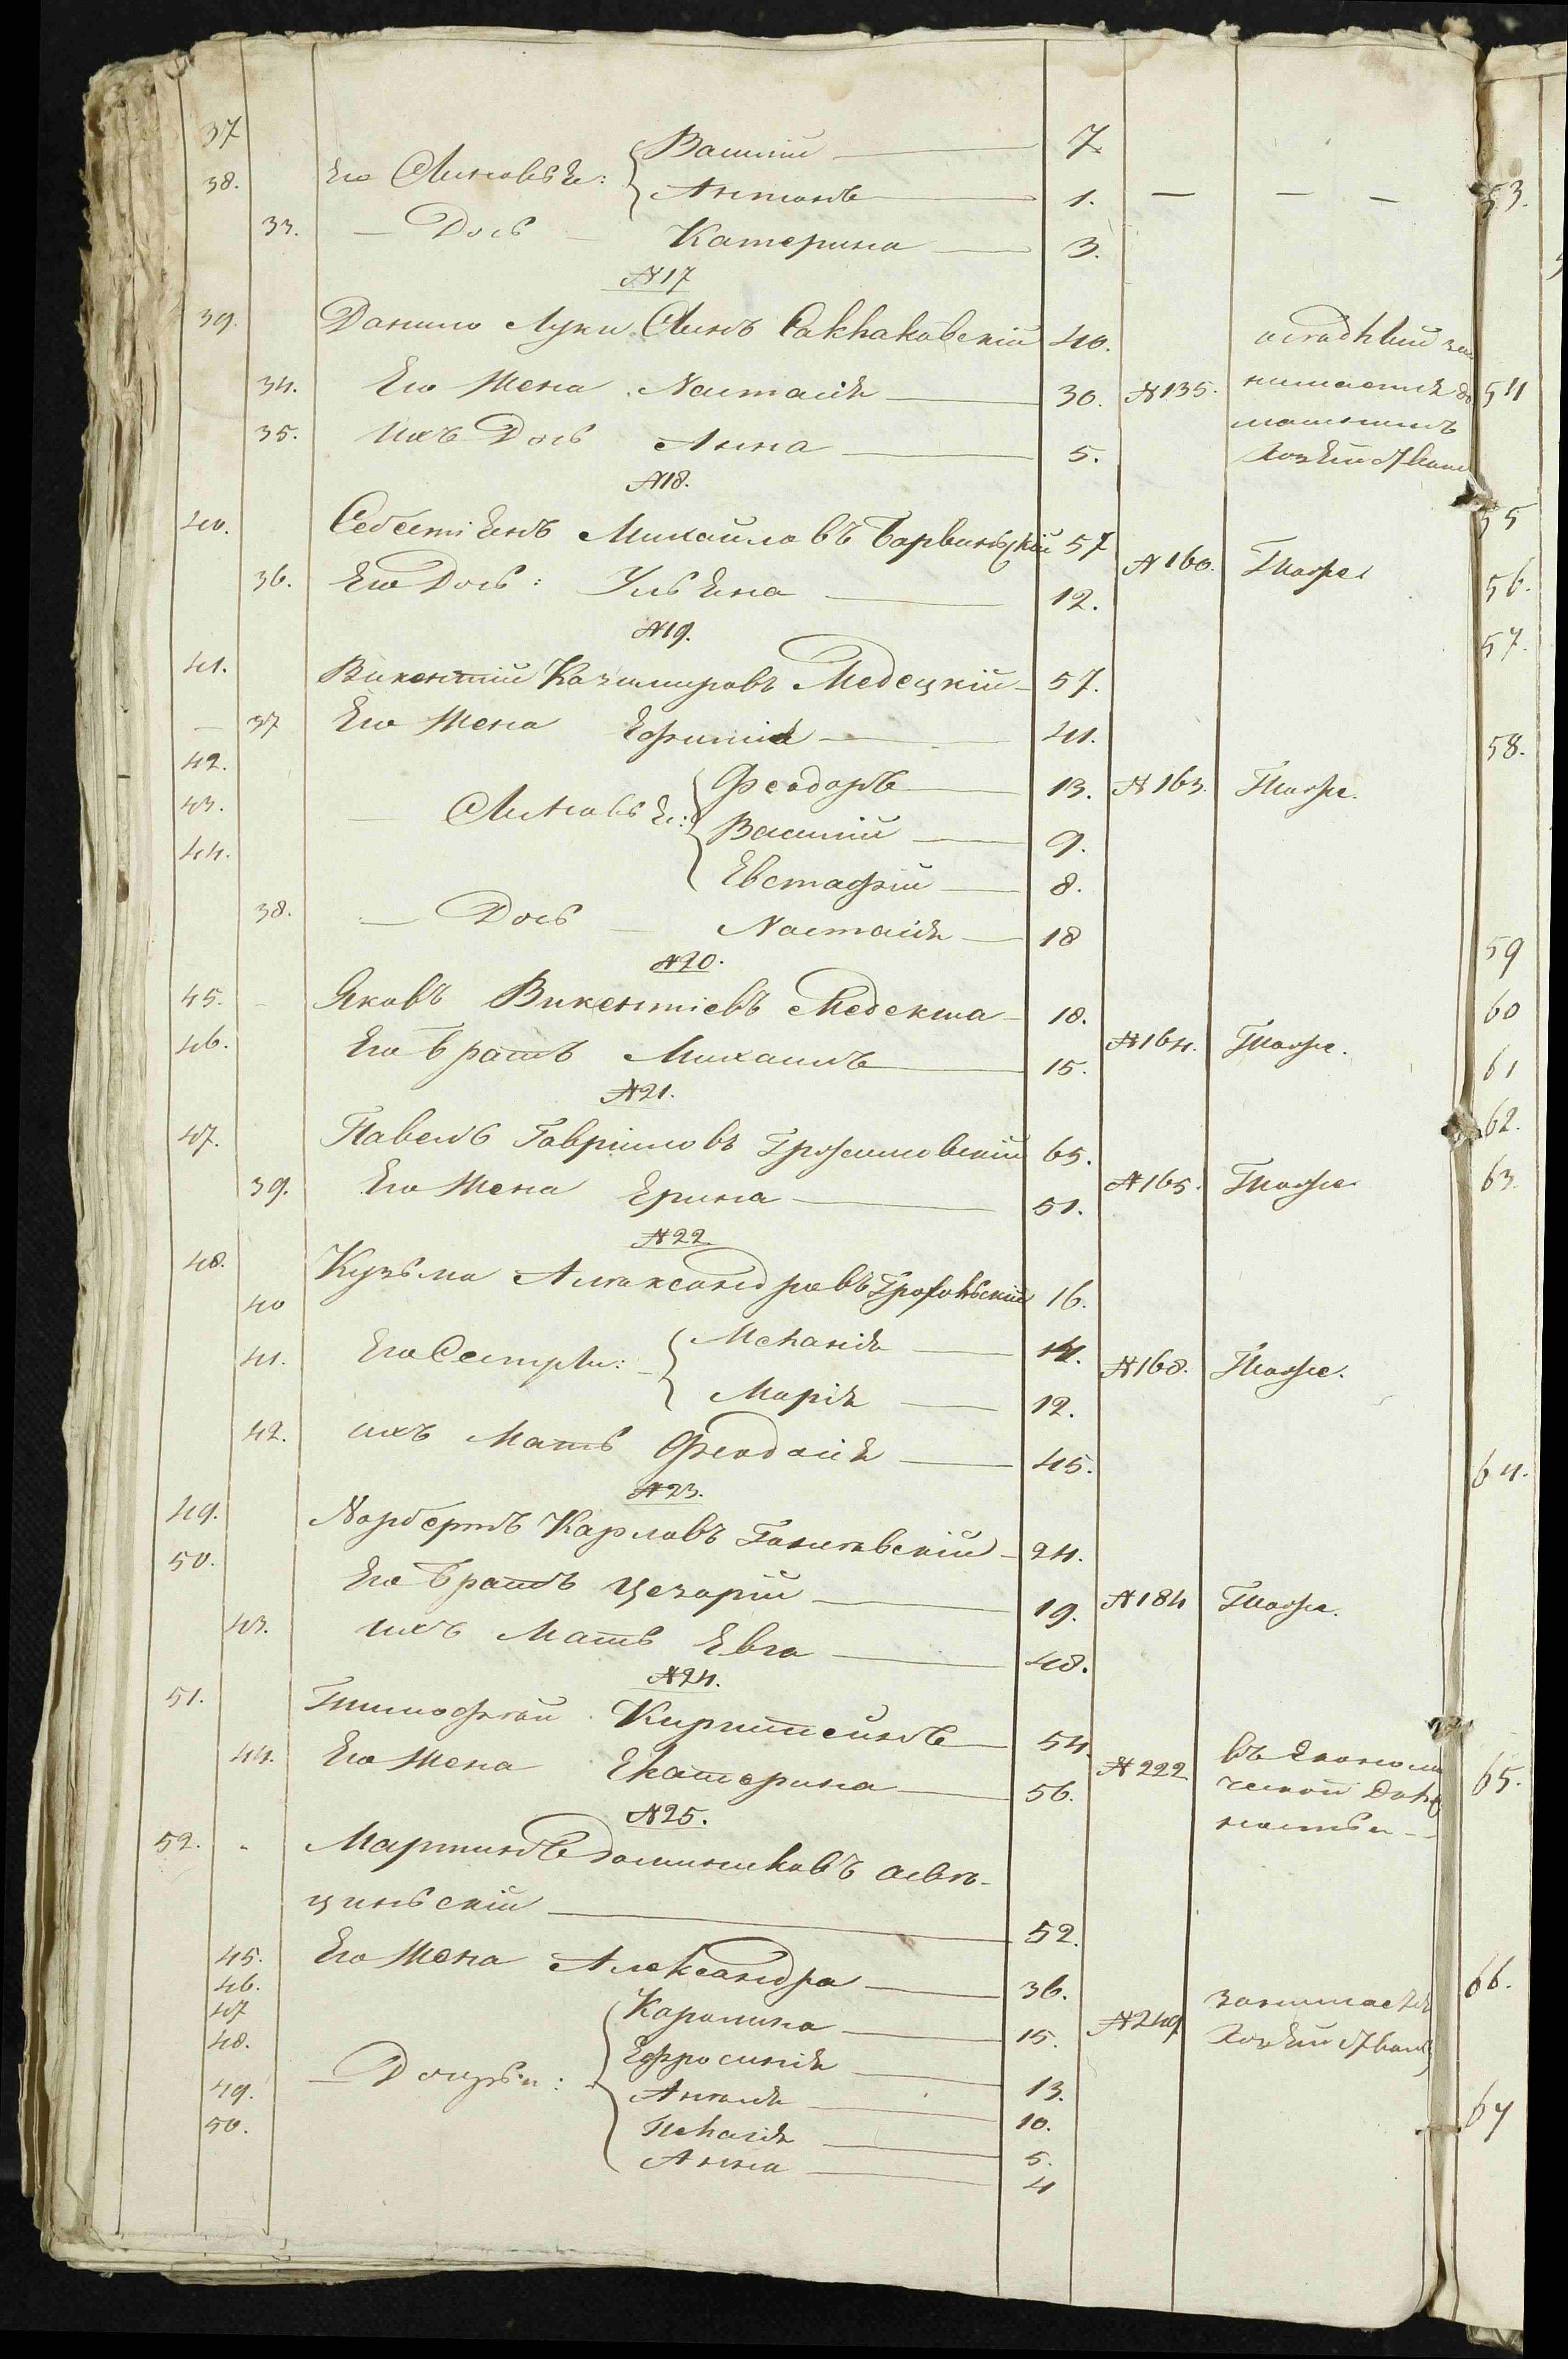 37 Василий 7
38. Его Сыновья: Антонъ 1. — — —
33. — Дочь — Катерина 3.
№17
39. Данило Луки Сынъ 40. осѣдлый за
34. Его Жена Настасія 30. №135. нимается до
35. Ихъ Дочь Анна 5. машнимъ
хозяйством
№18.
40. Себестіянъ Михайловъ Барвинскій 57 №160. Тоже
36. Его Дочь: Ульяна 12.
№19.
41. Викентий Казимировъ Медецкій 57.
— 37 Его Жена Ефимія 41.
42. Феодоръ 13. №163. Тоже.
43. — Сыновья: Василий 9.
44. Евстафій 8.
38. — Дочь — Настасія 18
№20.
45. Яковъ Викентіевъ Медекша 18.
46. Его братъ Михаилъ 15. №164. Тоже.
№21.
47. Павелъ Гавріиловъ 65.
39. Его Жена Ерина 51. №165. Тоже
№22
48. Кузьма Александровъ 16.
40 Меланія 14.
41. Его Сестры: Марія 12. №168. Тоже.
42. ихъ Мать Феодосія 45.
№23.
49. Норбертъ Карловъ 24.
50. Его братъ Цезарій 19. №184 Тоже.
43. ихъ Мать Евга 48.
№24.
51. Тимофей 54. въ Економи
44. Его Жена Екатерина 56. №222 ческой Долж
ности --
№25.
52. Мартинъ Доминиковъ Освѣ-
цинскій 52.
45. Его Жена Александра 36.
46. Каролина 15. №249 занимается
47 Ефросинія 13. хозяйством
48. — Дочери: Анѣля 10.
49. Пелагія 5.
50. Анна 4
53.
54
55
56.
57.
58.
59
60
61
62.
63.
64.
65.
66.
67